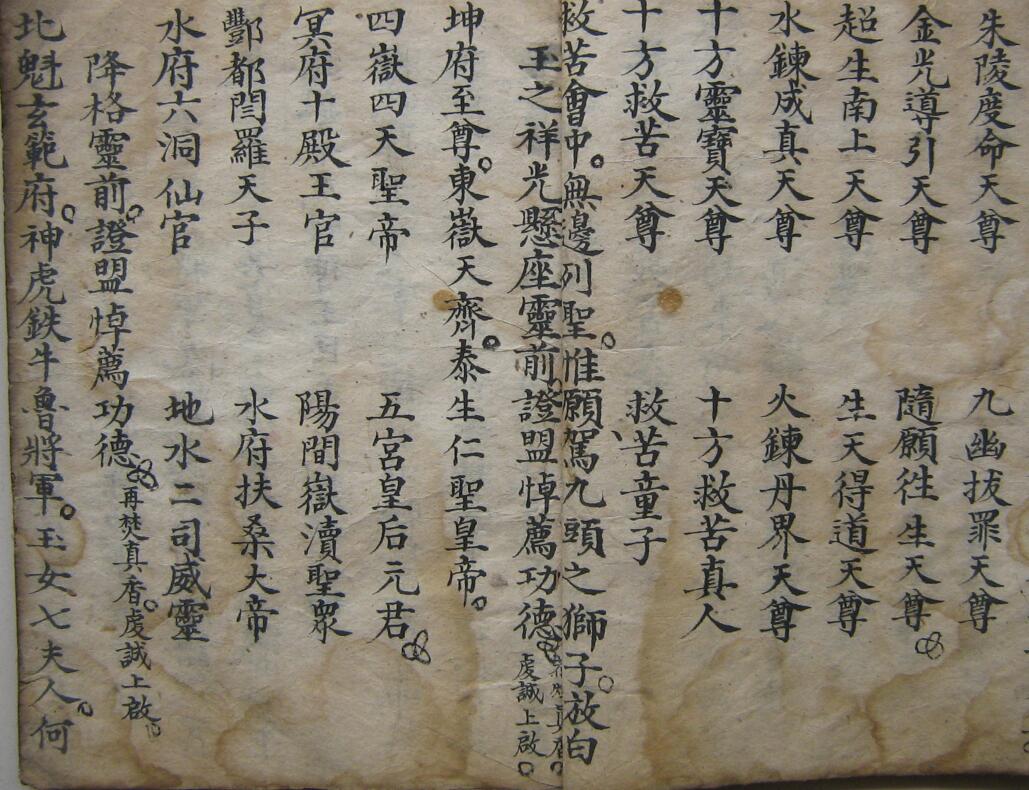 朱陵度命天尊 九幽拔罪天尊
金光導引天尊 隨願徃生天尊
超生南上天尊 生天得道天尊
水鍊成真天尊 火鍊丹界天尊
十方靈寶天尊 十方救苦真人
十方救苦天尊 救苦童子
救苦會中。無邊列聖。惟願駕九頭之獅子。放白
玉之祥光懸座靈前證盟悼薦功德 真香。虔誠上啟。
坤府至尊。東嶽天齊。泰生仁聖皇帝。
四嶽四天聖帝 五宮皇后元君
冥府十殿王官 陽間嶽瀆聖眾
酆都閆羅天子 水府扶桑大帝
水府六洞仙官 地水二司威靈
降格靈前。證盟悼薦功德 再焚真香。虔誠上啟
北魁玄範府。神虎鉄牛魯將軍。玉女七夫人。何